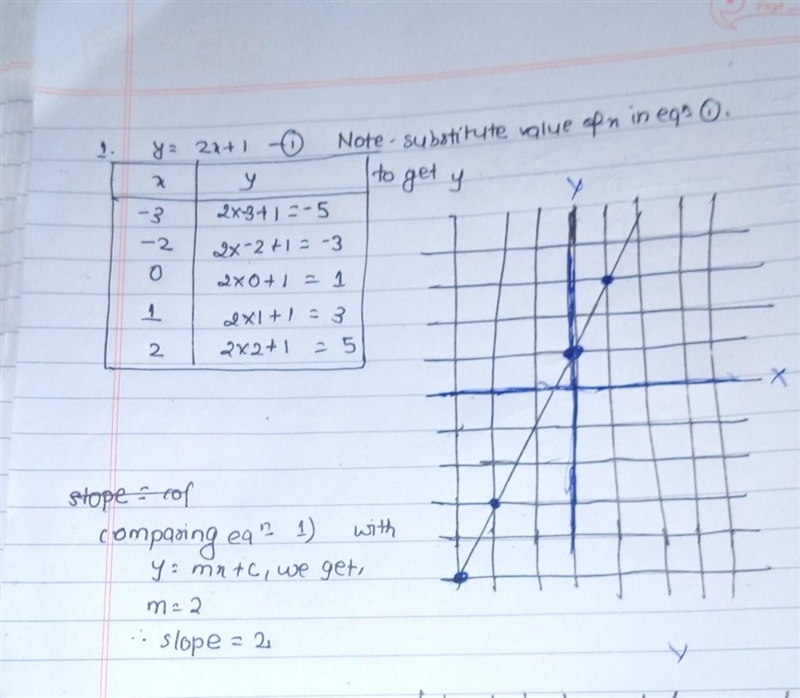 1. y = 2x+1 -① Note - substitute value of x in eqn ①.
to get y
x y
-3 2x-3+1 = -5
-2 2x-2+1 = -3
0 2x0+1 = 1
1 2x1+1 = 3
2 2x2+1 = 5
Y
X
slope = cof
comparing eqn 1) with
y = mx+c, we get,
m = 2
∴ slope = 2
Y